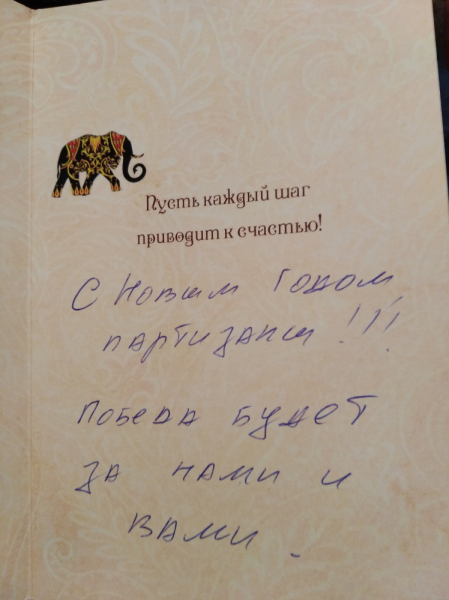 Пусть каждый шаг
приводит к счастью!
С Новым Годом,
партизаны!!!
Победа будет
за нами и
вами.